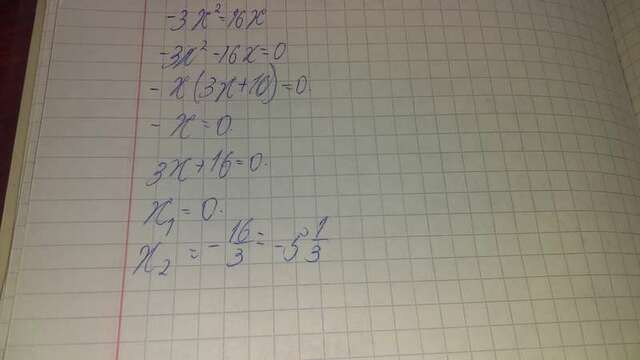 -3x² = 16x
-3x² - 16x = 0
- x(3x+16) = 0.
- x = 0.
3x + 16 = 0.
x₁ = 0.
x₂ = - 16/3 = -5 1/3